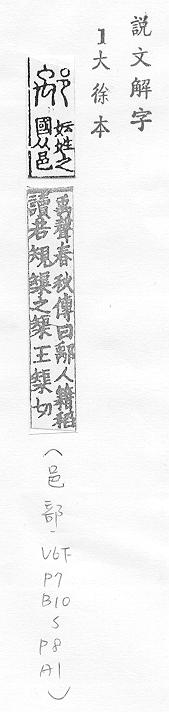 説文解字
1大徐本
鄅
妘姓之
國从邑
禹聲春秋傳曰鄅人籍稻
讀若規榘之榘王榘切
(邑部-
V6下
P7
B10
S
P8
A1)